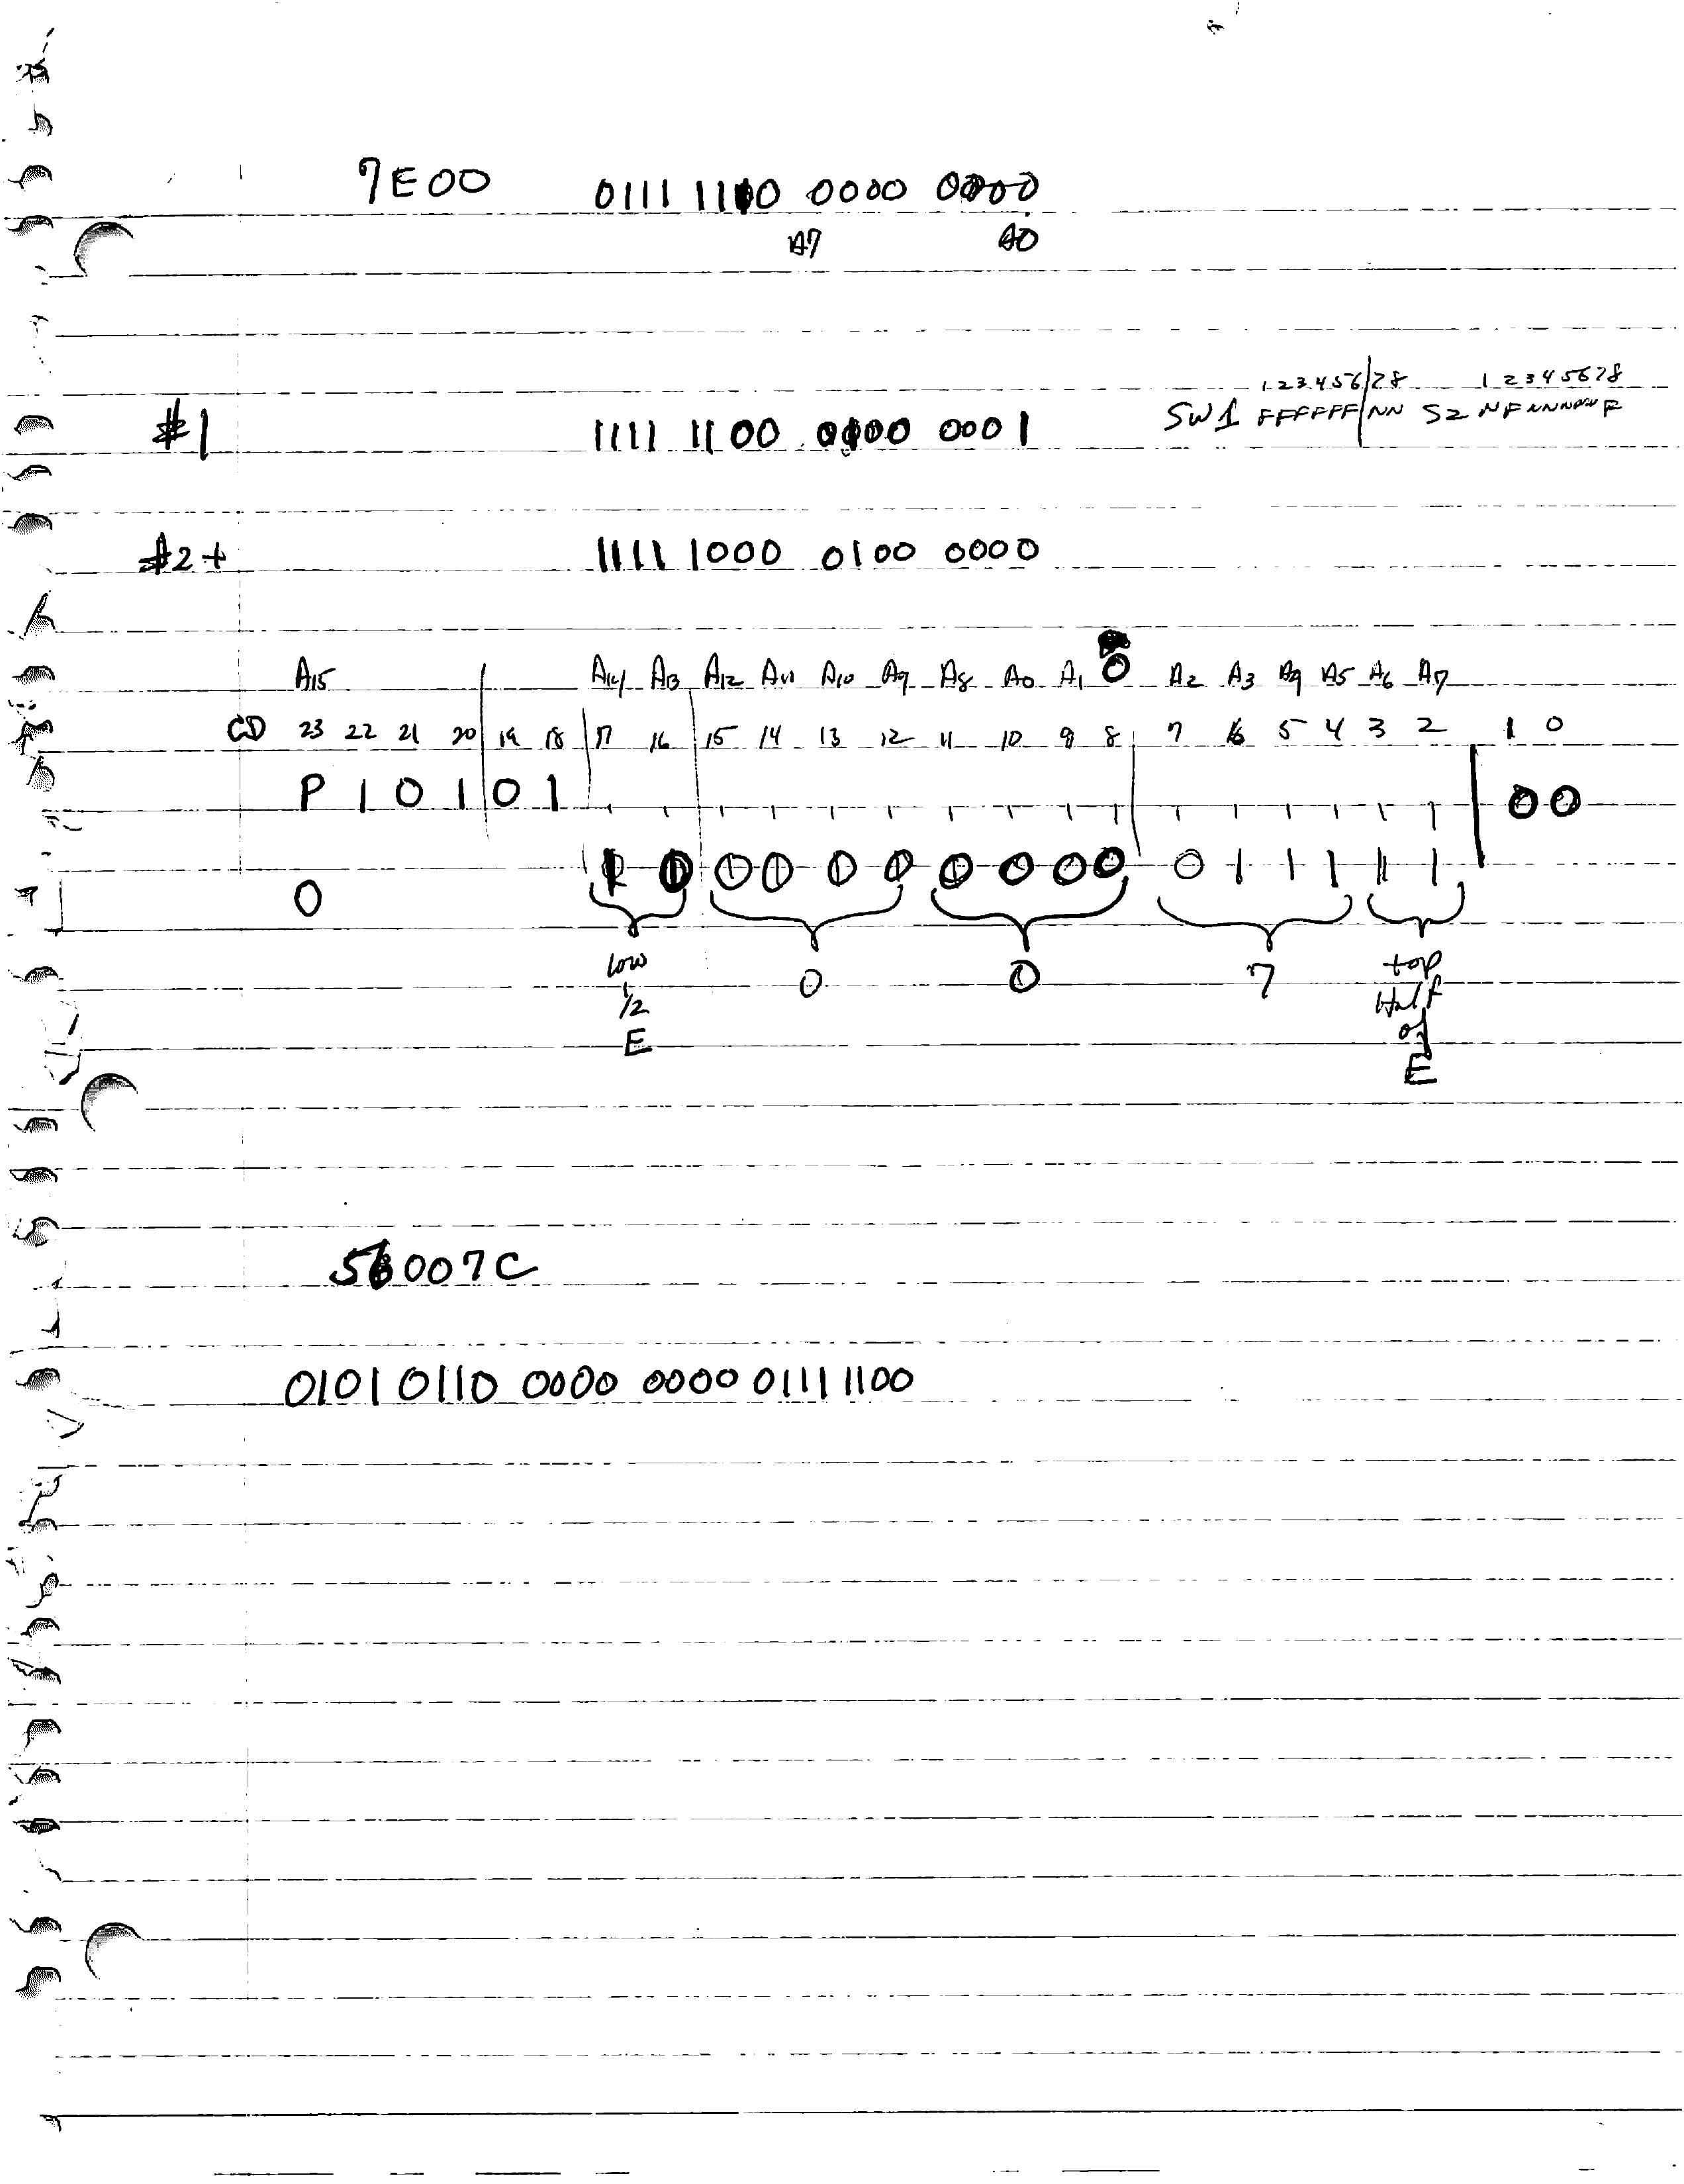 7E00 0111 1100 0000 0000
A7 A0
12345678 12345678
#1 1111 1100 0000 0001 SW1 FFFFFFNN S2 NFNNNNNF
#2+ 1111 1000 0100 0000
A15 A14 A13 A12 A11 A10 A9 A8 A0 A1 0 A2 A3 A4 A5 A6 A7
CD 23 22 21 20 19 18 17 16 15 14 13 12 11 10 9 8 7 6 5 4 3 2 1 0
P 1 0 1 0 1 0 0
0 0 0 0 0 0 0 0 0 0 1 1 1 1 1
low 1/2 E 0 0 7 top Half of E
56007C
0101 0110 0000 0000 0111 1100